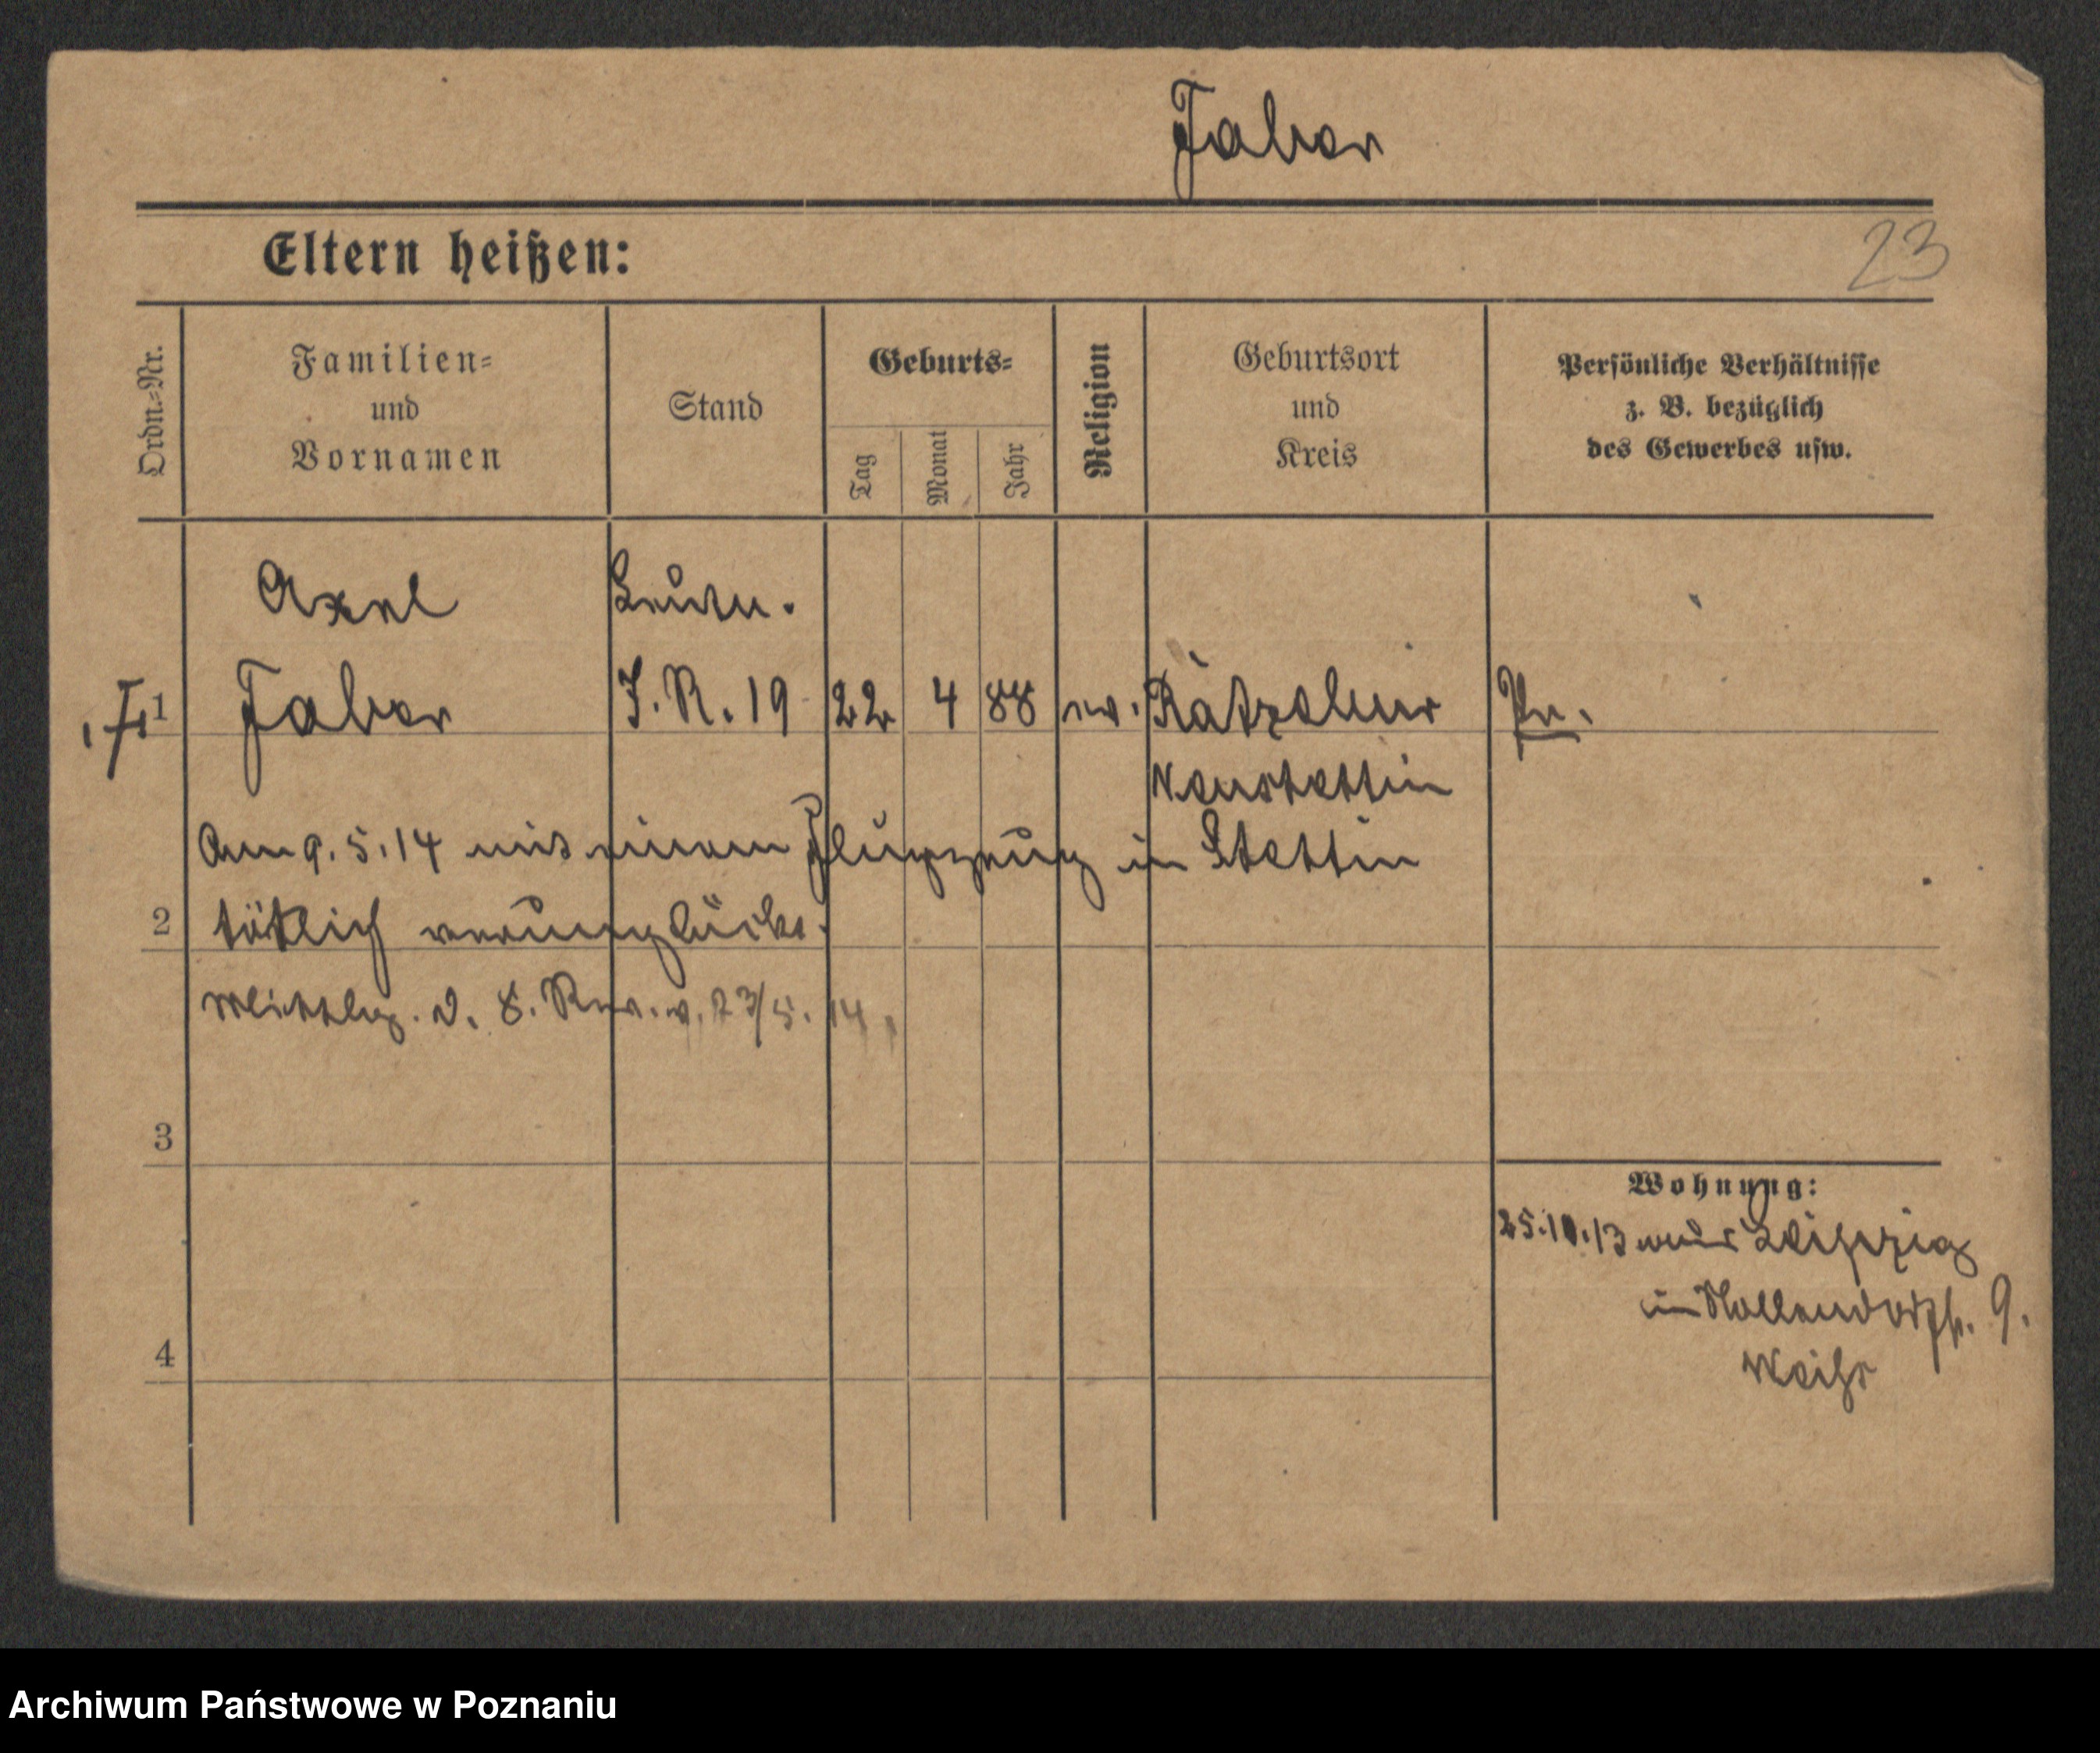 Faber
Eltern heißen:
23
Ordn.-Nr.
Familien-
und
Vornamen
Stand
Geburts-
Tag
Monat
Jahr
Religion
Geburtsort
und
Kreis
Persönliche Verhältnisse
z. B. bezüglich
des Gewerbes usw.
Axel
Leutn.
1
Faber
I. R. 19
22
4
88
ev.
Ratzebur
Pr.
Neustettin
Am 9.5.14 mit einem Flugzeug in Stettin
2
tötlich verunglückt.
Mittlg. d. 8. Rev. v. 23/5. 14.
3
Wohnung:
25.10.13 aus Leipzig
in Nollendorfstr. 9.
4
Archiwum Państwowe w Poznaniu